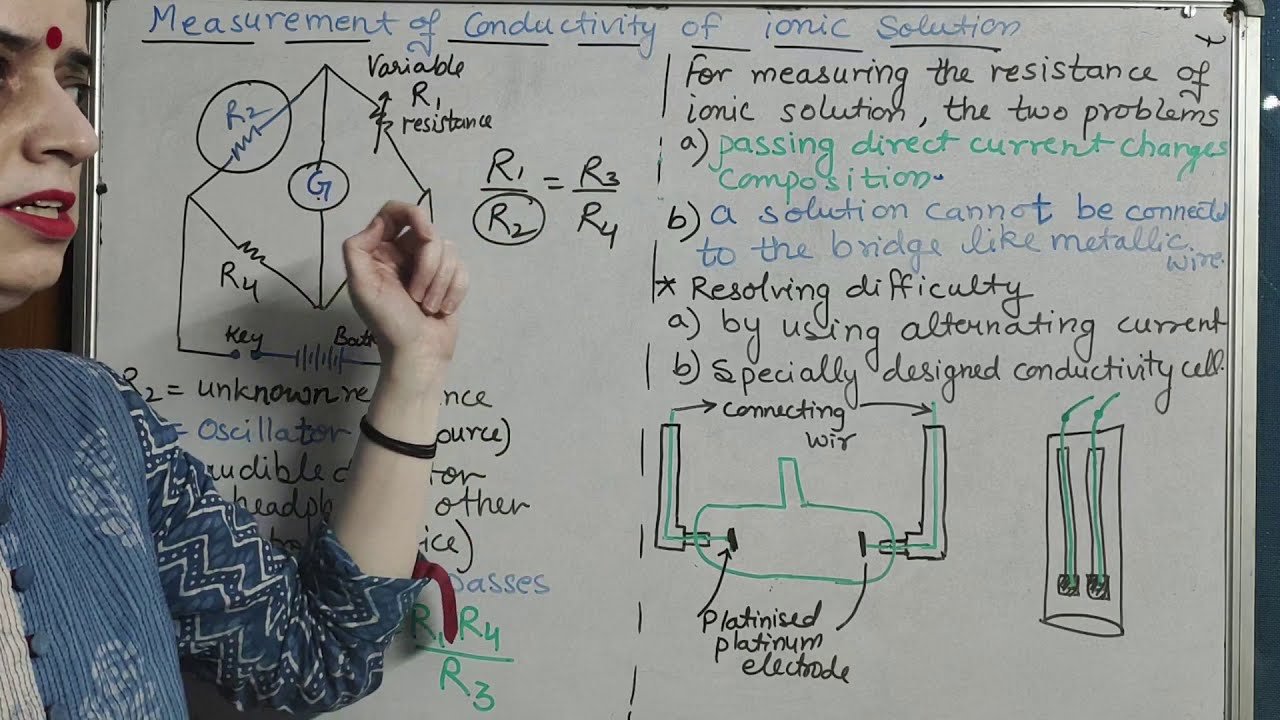 Measurement of Conductivity of ionic Solution
Variable
R1
resistance
R2
G
R4
Key
R1/R2 = R3/R4
R2 = unknown
= Oscillator
ource)
other
ice)
passes
R1 R4
R3
For measuring the resistance of
ionic solution, the two problems
a) passing direct current changes
composition.
b) a solution cannot be connected
to the bridge like metallic
wire.
* Resolving difficulty
a) by using alternating current
b) Specially designed conductivity cell.
connecting
wir
Platinised
platinum
electrode